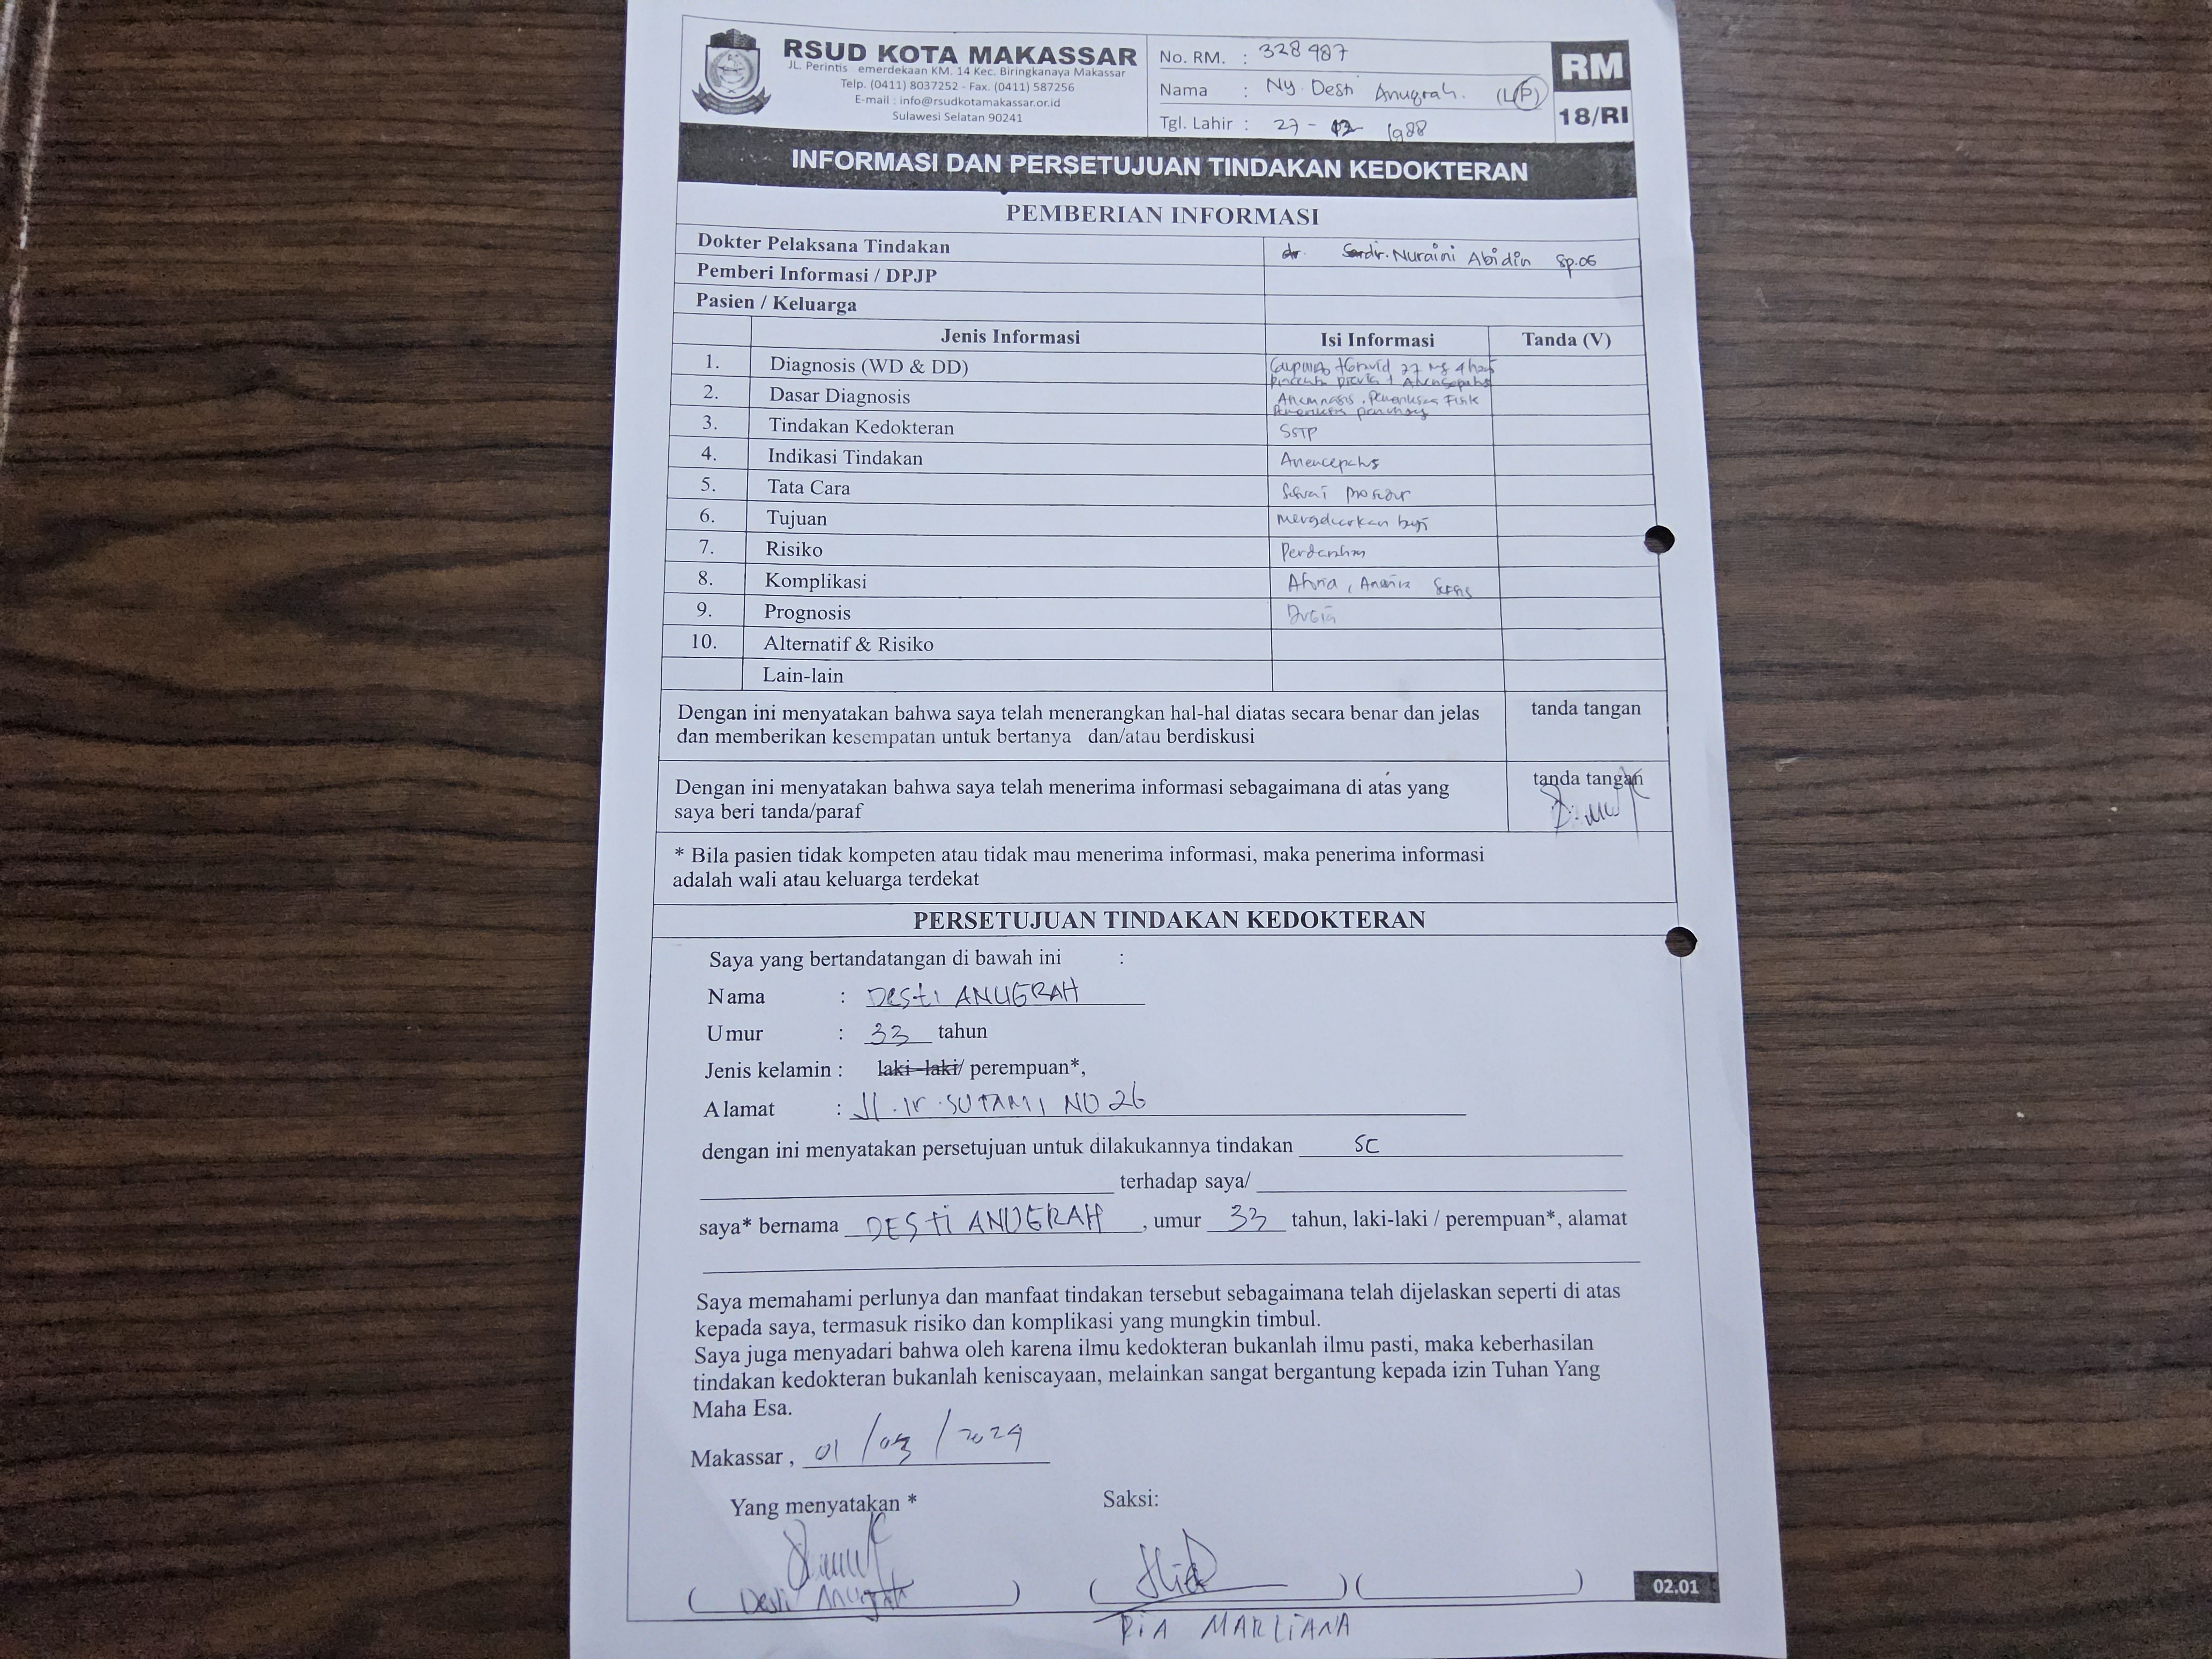 RSUD KOTA MAKASSAR
JL. Perintis emerdekaan KM. 14 Kec. Biringkanaya Makassar
Telp. (0411) 8037252 - Fax. (0411) 587256
E-mail : info@rsudkotamakassar.or.id
Sulawesi Selatan 90241
No. RM. : 328987
Nama : Ny. Desti Anugrah. (L/P)
Tgl. Lahir : 27 - 12 - 1988
RM
18/RI
INFORMASI DAN PERSETUJUAN TINDAKAN KEDOKTERAN
PEMBERIAN INFORMASI
Dokter Pelaksana Tindakan dr. Nuraini Abidin Sp.OG
Pemberi Informasi / DPJP
Pasien / Keluarga
Jenis Informasi Isi Informasi Tanda (V)
1. Diagnosis (WD & DD) Gravid 27 mg 4 hari
2. Dasar Diagnosis Fisik
3. Tindakan Kedokteran SSTP
4. Indikasi Tindakan Anencepalus
5. Tata Cara Sesuai prosedur
6. Tujuan bayi
7. Risiko Perdarahan
8. Komplikasi
9. Prognosis
10. Alternatif & Risiko
Lain-lain
Dengan ini menyatakan bahwa saya telah menerangkan hal-hal diatas secara benar dan jelas tanda tangan
dan memberikan kesempatan untuk bertanya dan/atau berdiskusi
Dengan ini menyatakan bahwa saya telah menerima informasi sebagaimana di atas yang tanda tangan
saya beri tanda/paraf
* Bila pasien tidak kompeten atau tidak mau menerima informasi, maka penerima informasi
adalah wali atau keluarga terdekat
PERSETUJUAN TINDAKAN KEDOKTERAN
Saya yang bertandatangan di bawah ini :
Nama : Desti ANUGRAH
Umur : 33 tahun
Jenis kelamin : laki-laki/ perempuan*,
Alamat : Jl. Ir. SUTAMI NO 26
dengan ini menyatakan persetujuan untuk dilakukannya tindakan SC
terhadap saya/
saya* bernama DESTI ANUGRAH, umur 33 tahun, laki-laki / perempuan*, alamat
Saya memahami perlunya dan manfaat tindakan tersebut sebagaimana telah dijelaskan seperti di atas
kepada saya, termasuk risiko dan komplikasi yang mungkin timbul.
Saya juga menyadari bahwa oleh karena ilmu kedokteran bukanlah ilmu pasti, maka keberhasilan
tindakan kedokteran bukanlah keniscayaan, melainkan sangat bergantung kepada izin Tuhan Yang
Maha Esa.
Makassar, 01 / 03 / 2024
Yang menyatakan * Saksi:
( Desti Anugrah ) ( ) ( )
RIA MARLIANA
02.01